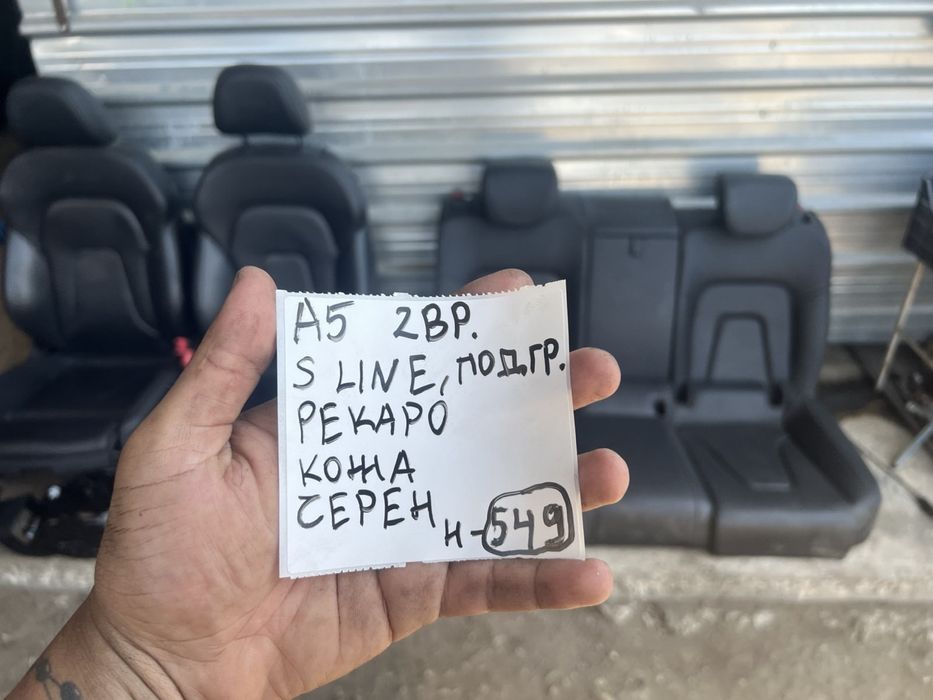 А5 2ВР.
S LINE, ПОДГР.
РЕКАРО
КОЖА
ЧЕРЕН
Н-549